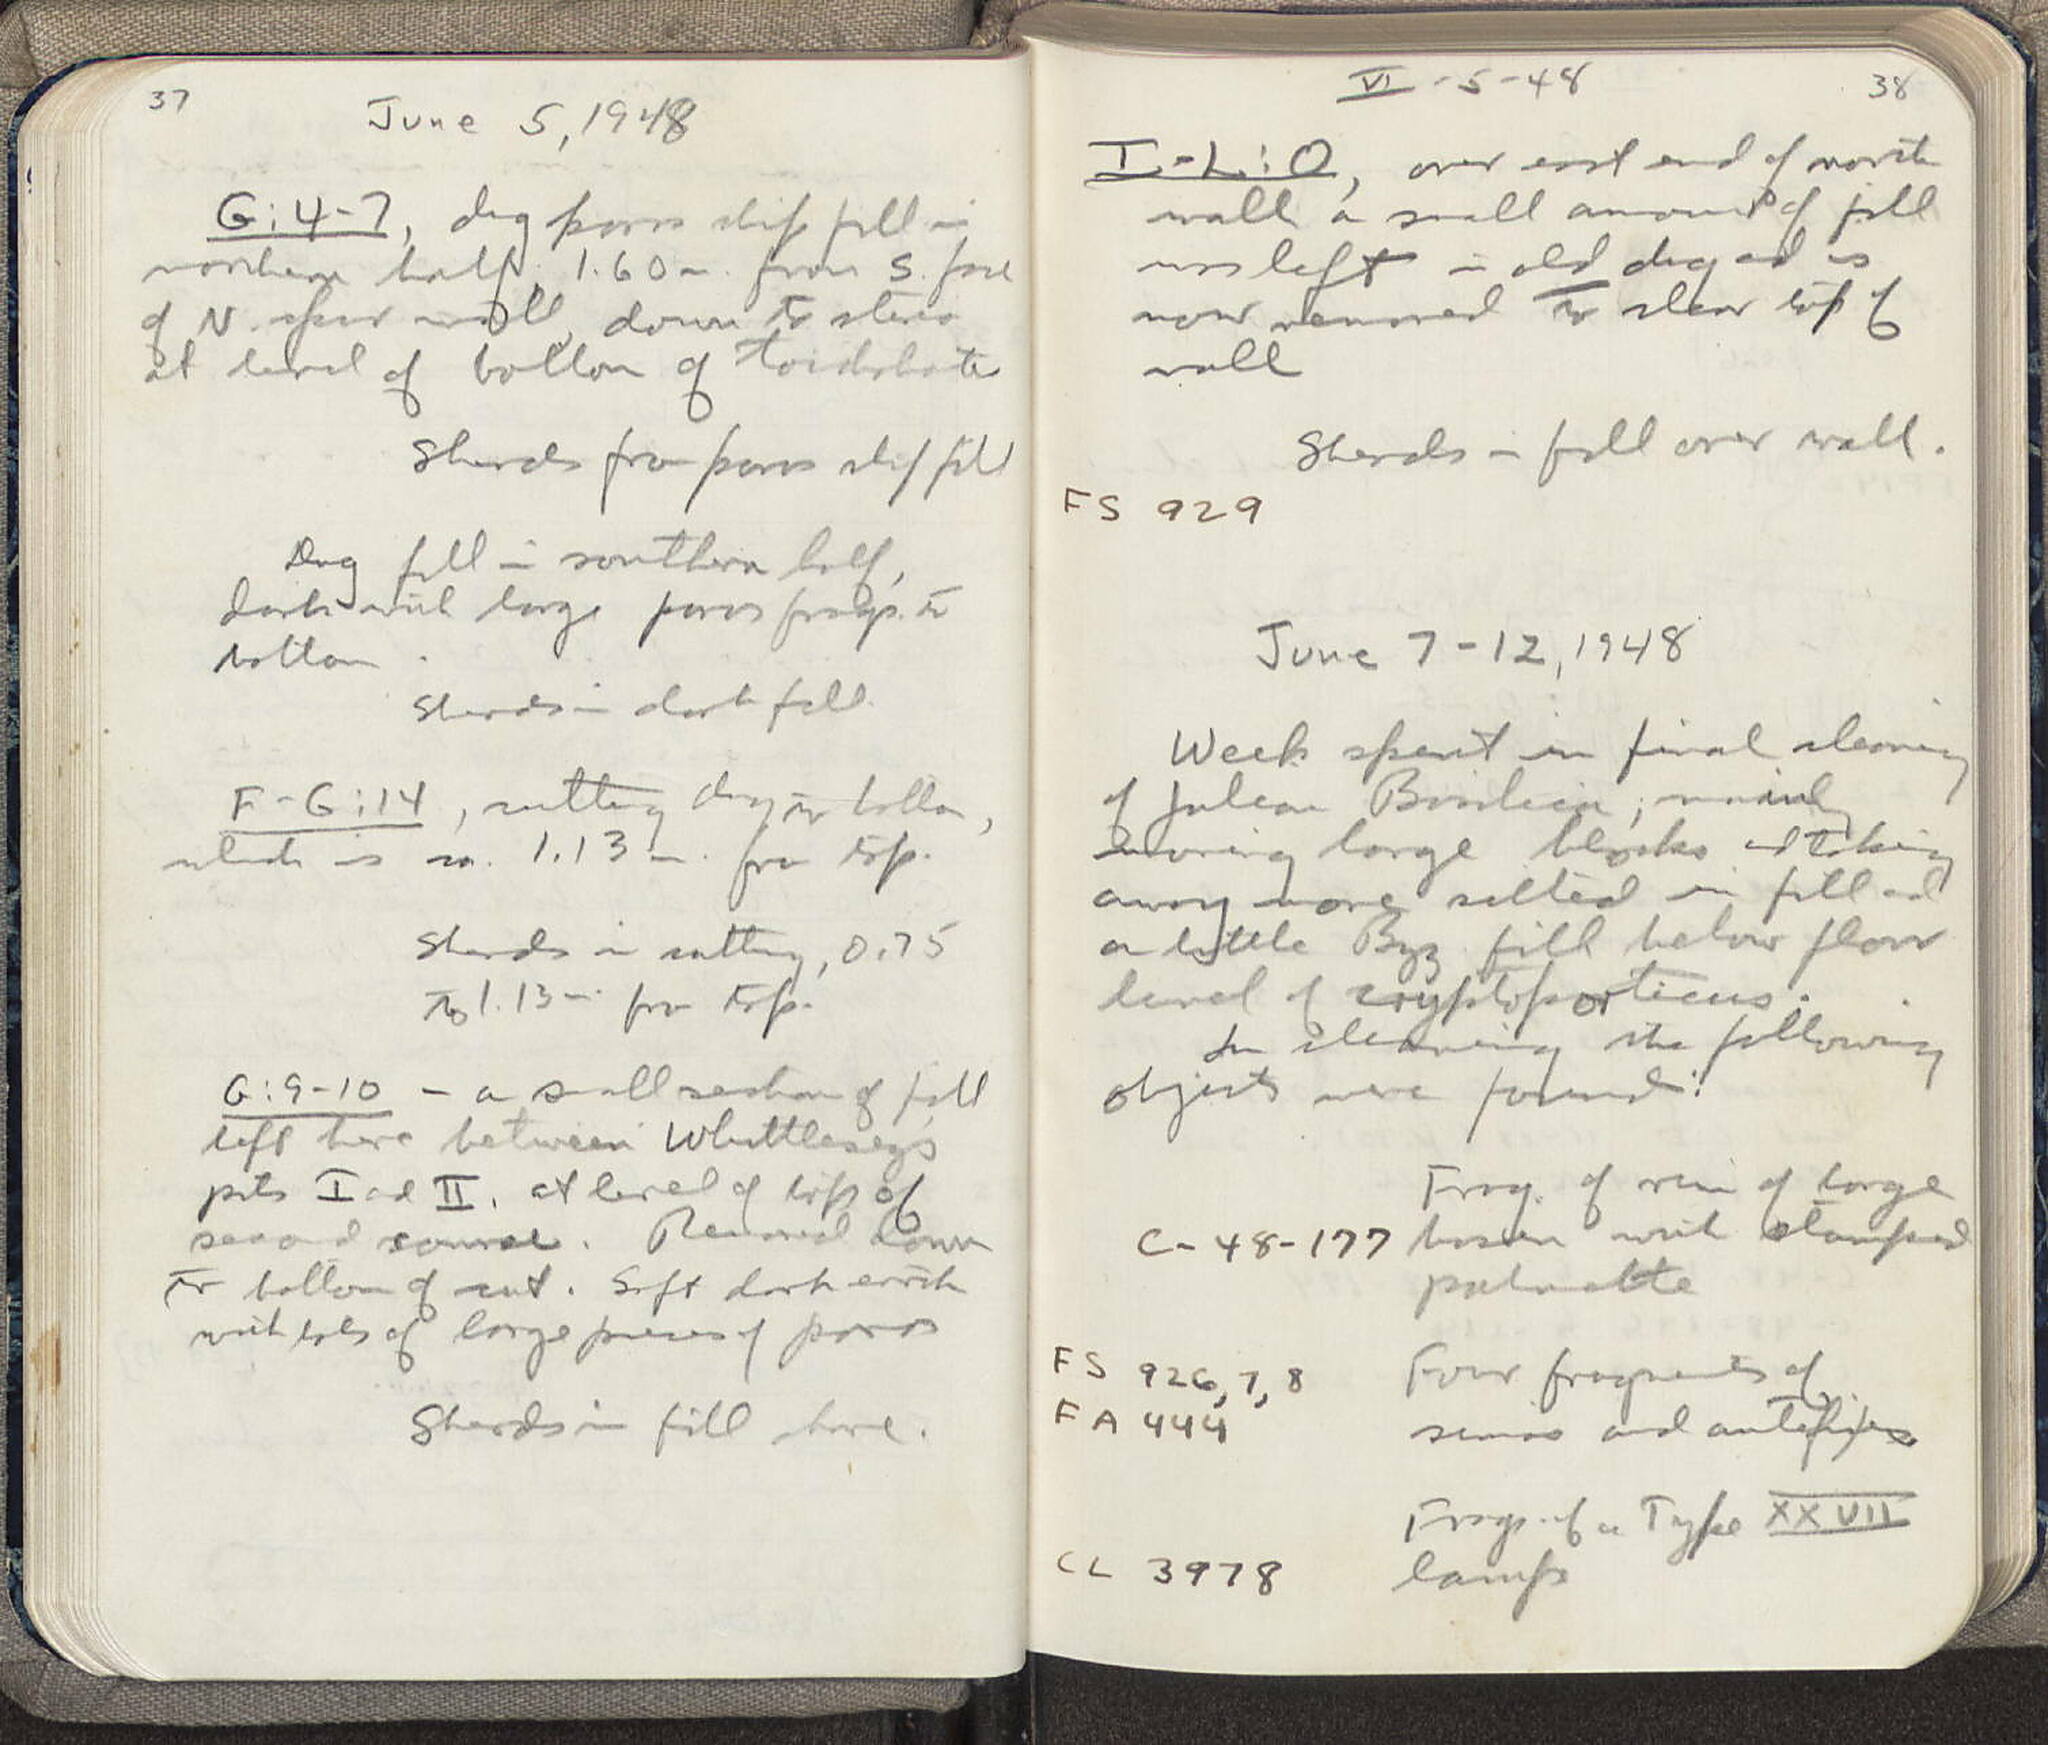 37
June 5, 1948
G:4-7, dug poros chip fill in
northern half, 1.60 m. from S. face
of N. spur wall, down to stereo
at level of bottom of toichobate
Sherds from poros chip fill
Dug fill in southern half,
dark with large poros frags. to
bottom.
Sherds in dark fill.
F-G:14, cutting dug to bottom,
which is ca. 1.13 m. from top.
Sherds in cutting, 0.75
to 1.13 m. from top.
G:9-10 - a small section of fill
left here between Whittlesey's
pits I and II, at level of top of
second course. Removed down
to bottom of cut. Soft dark earth
with lots of large pieces of poros
Sherds in fill here.
VI-5-48
38
I-L:O, over east end of north
wall a small amount of fill
was left in old dig and is
now removed to clear top of
wall
Sherds in fill over wall.
FS 929
June 7-12, 1948
Week spent in final cleaning
of Julian Basilica, mainly
moving large blocks and taking
away more silted in fill and
a little Byz. fill below floor
level of cryptoporticus.
In cleaning the following
objects were found:
Frag. of rim of large
C-48-177 basin with stamped
palmette
FS 926, 7, 8 Four fragments of
FA 444 simas and antefixes
Frags. of a Type XXVII
CL 3978 lamp